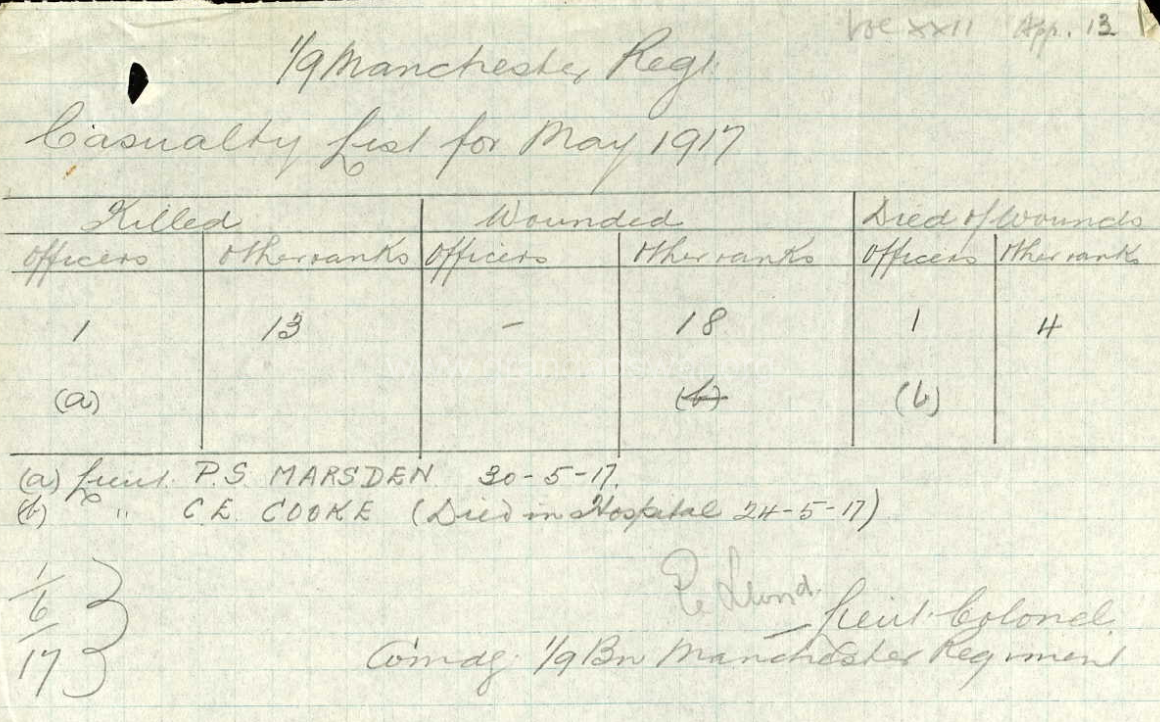 Vol XXII App. 13
1/9 Manchester Regt.
Casualty List for May 1917
Killed Wounded Died of Wounds
Officers Other ranks Officers Other ranks Officers Other ranks
1 13 - 18 1 4
(a) (b) (b)
(a) Lieut. P.S. MARSDEN 30-5-17.
(b) " C.E. COOKE (Died in Hospital 24-5-17)
1/6/17
Lieut. Colonel
Comdg. 1/9 Bn Manchester Regiment